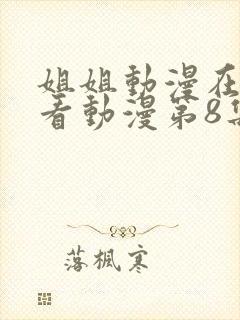 姐姐動漫在
看動漫第8集
落楓寒